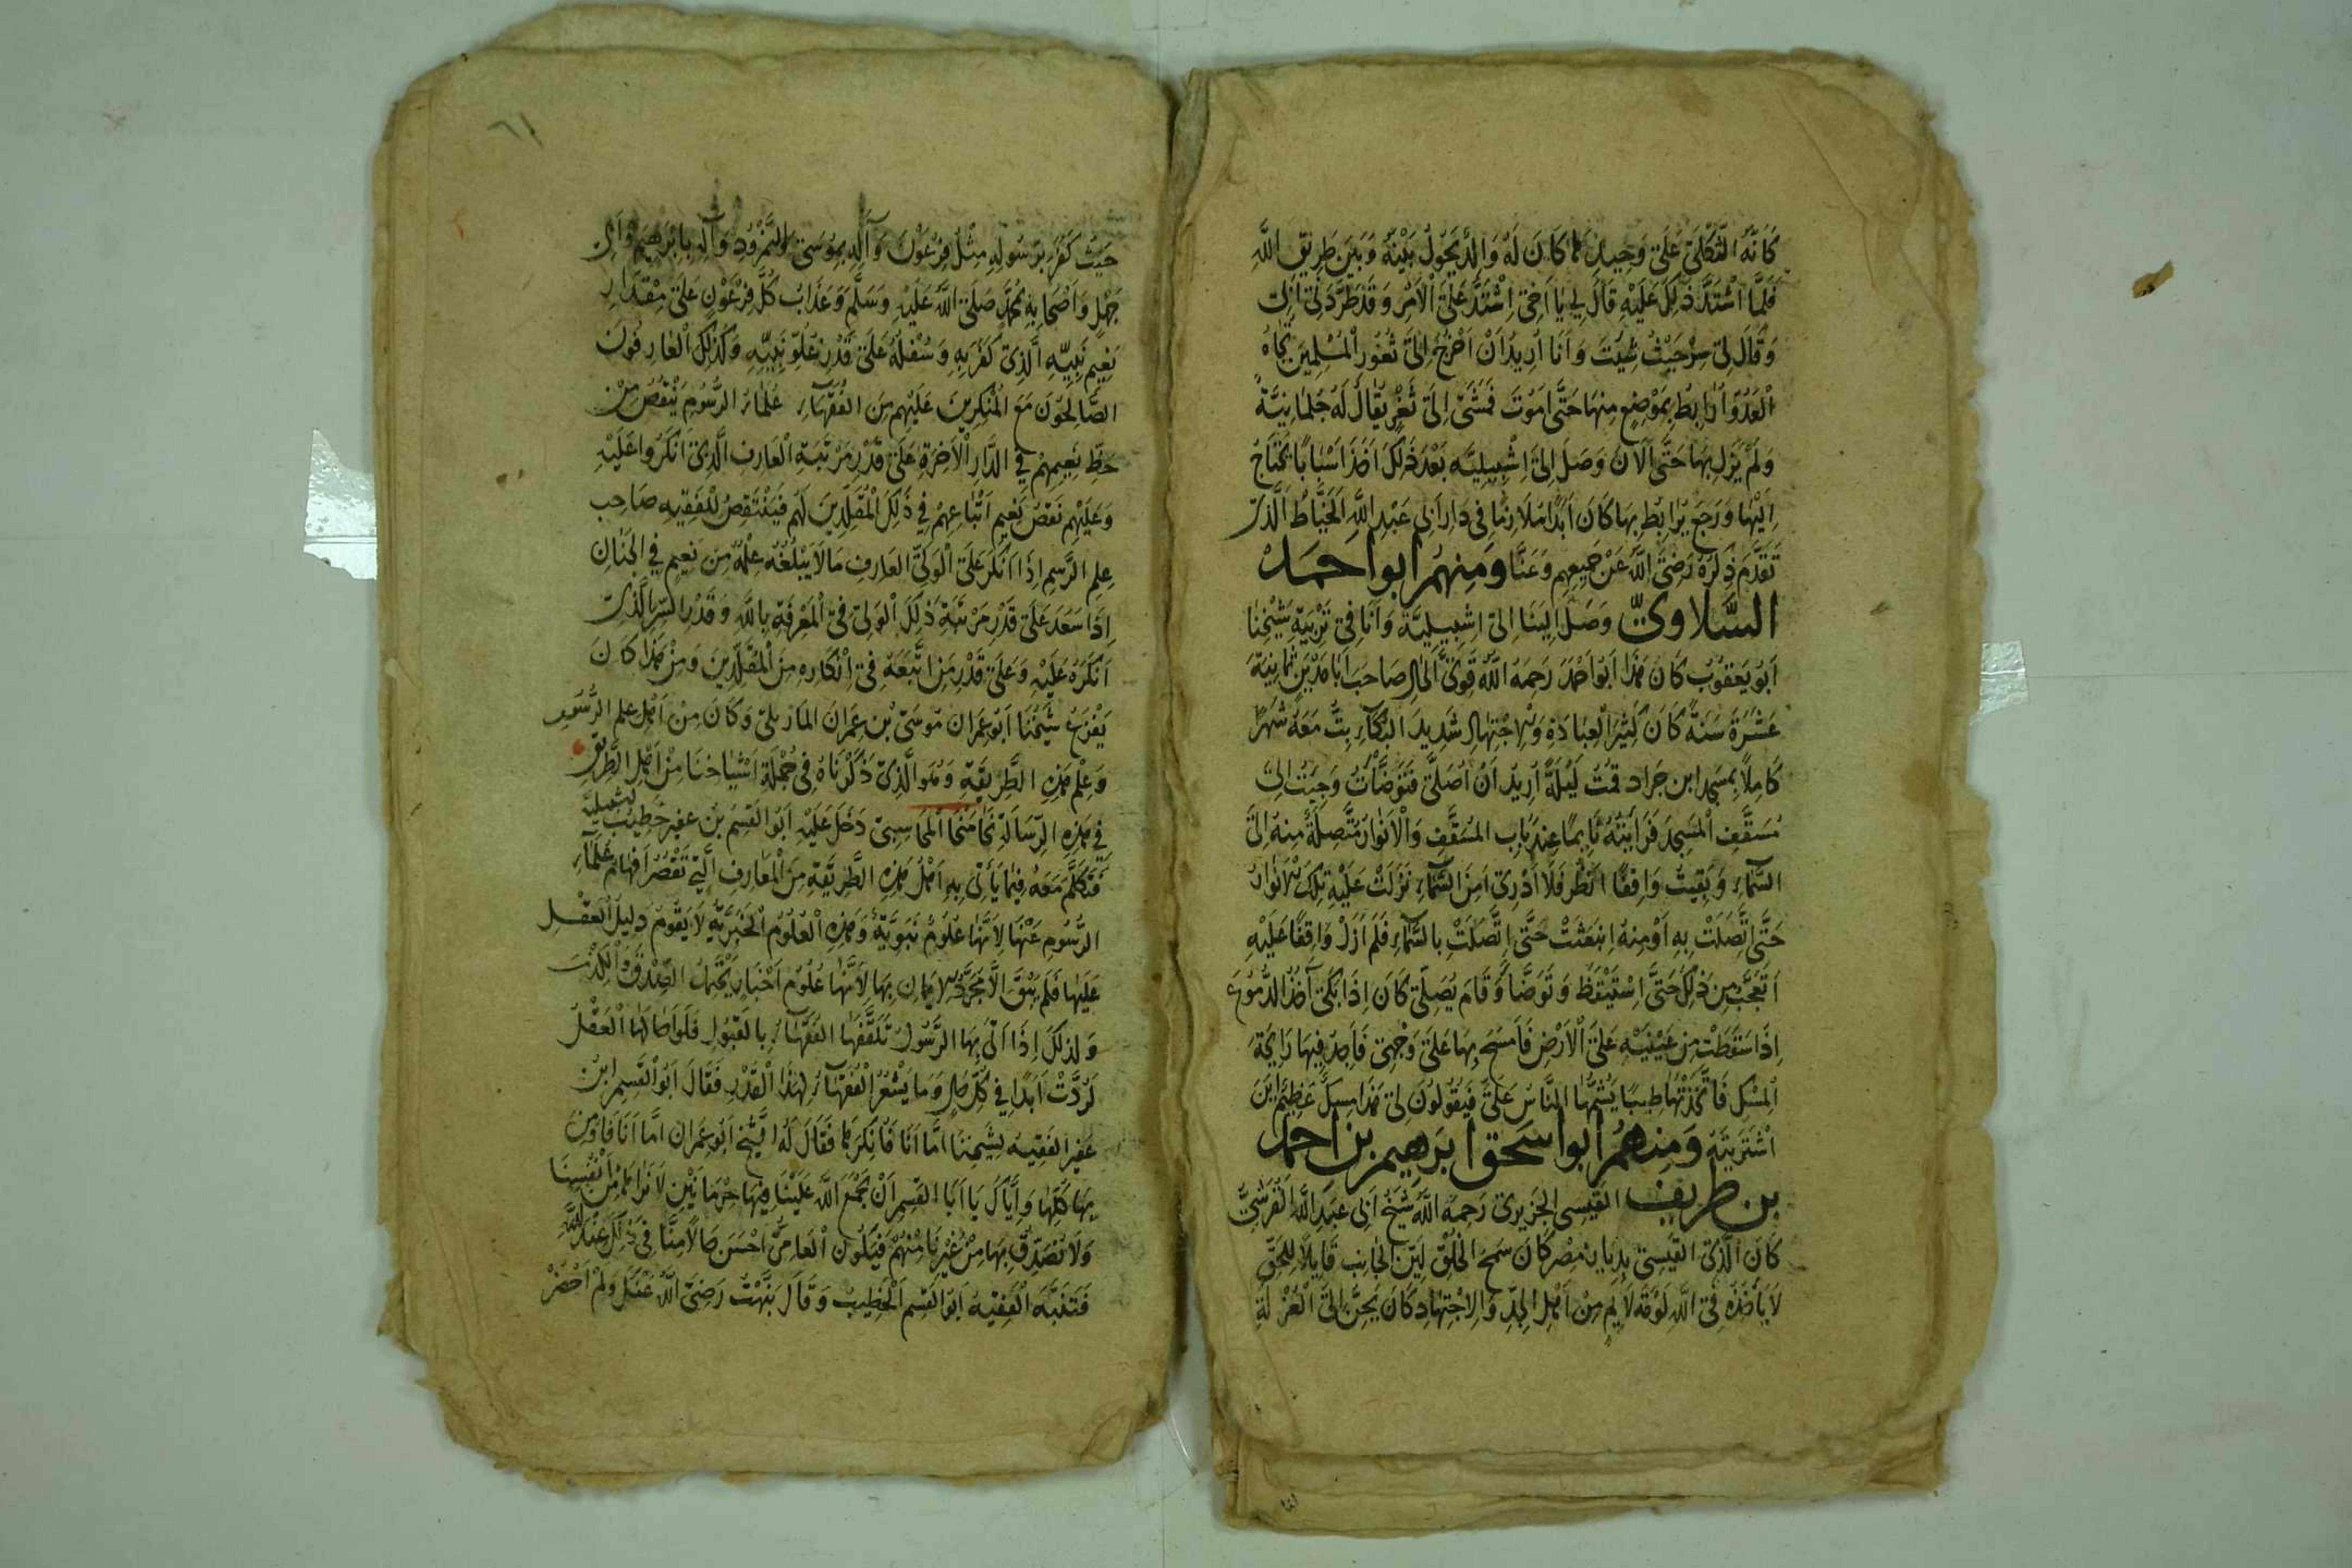 كَانَهُ الثَّكْلَىٰ عَلَىٰ وَحِيدِهَا كَانَ لَهُ وَالِدٌ يَحُولُ بَيْنَهُ وَبَيْنَ طَرِيقِ اللَّهِ
فَلَمَّا اشْتَدَّ ذَلِكَ عَلَيْهِ قَالَ لِي يَا أَخِي اِشْتَدَّ عَلَيَّ الْأَمْرُ وَقَدْ طَرَدَنِي أَبِي
وَقَالَ لِي سِرْ حَيْثُ شِئْتَ وَأَنَا أُرِيدُ أَنْ أَخْرُجَ إِلَىٰ ثُغُورِ الْمُسْلِمِينَ تُجَاهَ
الْعَدُوِّ أُرَابِطُ بِمَوْضِعٍ مِنْهَا حَتَّىٰ أَمُوتَ فَمَشَىٰ إِلَىٰ ثَغْرٍ يُقَالُ لَهُ جَلْمَانِيَّةُ
وَلَمْ يَزَلْ بِهَا حَتَّى الْآنَ وَصَلَ إِلَىٰ إِشْبِيلِيَّه بَعْدَ ذَلِكَ أَخَذَ أَسْبَابًا يَحْتَاجُ
إِلَيْهَا وَرَجَعَ يُرَابِطُ بِهَا كَانَ أَبَدًا مُلَازِمًا فِي دَارِ أَبِي عَبْدِ اللَّهِ الْخَيَّاطِ الَّذِي
تَقَدَّمَ ذِكْرُهُ رَضِيَ اللَّهُ عَنْ جَمِيعِهِمْ وَعَنَّا وَمِنْهُمْ أبو أحمد
السَّلاوِيّ وَصَلَ إِلَيْنَا إِلَىٰ إِشْبِيلِيَّةَ وَأَنَا فِي تَرْبِيَةِ شَيْخِنَا
أَبُو يَعْقُوبَ كَانَ هَذَا أَبُو أَحْمَدَ رَحِمَهُ اللَّهُ قَوِيَّ الْحَالِ صَاحَبَ أَبَا مَدْيَنَ ثَمَانِيَةَ
عَشَرَةَ سَنَةً كَانَ كَثِيرَ الْعِبَادَةِ وَالْاجْتِهَادِ شَدِيدَ الْبُكَاءِ بِتُّ مَعَهُ شَهْرًا
كَامِلًا بِمَسْجِدِ ابْنِ جَرَاد قُمْتُ لَيْلَةً أُرِيدُ أَنْ أُصَلِّيَ فَتَوَضَّأْتُ وَجِئْتُ إِلَىٰ
مُسَقَّفِ الْمَسْجِدِ فَرَأَيْتُهُ نَايِمًا عِنْدَ بَابِ الْمُسَقَّفِ وَالْأَنْوَارُ مُتَّصِلَةٌ مِنْهُ إِلَىٰ
السَّمَاءِ وَبَقِيتُ وَاقِفًا أَنْظُرُ فَلَا أَدْرِي أَمِنَ السَّمَاءِ نَزَلَتْ عَلَيْهِ تِلْكَ الْأَنْوَارُ
حَتَّىٰ اتَّصَلَتْ بِهِ أَوْ مِنْهُ انْبَعَثَتْ حَتَّىٰ اتَّصَلَتْ بِالسَّمَاءِ فَلَمْ أَزَلْ وَاقِفًا عَلَيْهِ
أَتَعَجَّبُ مِنْ ذَلِكَ حَتَّىٰ اسْتَيْقَظَ وَتَوَضَّأَ وَقَامَ يُصَلِّي كَانَ إِذَا بَكَىٰ آخُذُ الدُّمُوعَ
إِذَا سَقَطَتْ مِنْ عَيْنَيْهِ عَلَىٰ الْأَرْضِ فَأَمْسَحُ بِهَا عَلَىٰ وَجْهِي فَأَجِدُ فِيهَا رَايِحَةَ
الْمِسْكِ فَأَتَّخَذْتُهَا طِيبًا يَشُمُّهَا النَّاسُ عَلَيَّ فَيَقُولُونَ لِي هَذَا مِسْكٌ عَظِيمٌ أَيْنَ
اشْتَرَيْتَهُ وَمِنهُم أبوا سحق ابرهيم بن احمد
بن طريف القيسي الجَزِيرِي رَحِمَهُ اللَّهُ شَيْخُ أَبِي عَبْدِ اللَّهِ الْقُرَشِيّ
كَانَ الَّذِي الْقَيْسِي بِدِيَارِ مِصْرَ كَانَ سَمِحَ الْخُلُقِ لَيِّنَ الْجَانِبِ قَايِلًا لِلْحَقِّ
لَا يَأْخُذُهُ فِي اللَّهِ لَوْمَةُ لَايِمٍ مِنْ أَهْلِ الْجِدِّ وَالِاجْتِهَادِ كَانَ يَحِنُّ إِلَىٰ الْعُزْلَةِ
٦١
حَيْثُ كَفَرَ بِرَسُولِهِ مِثْلُ فِرْعَوْنَ وَآلِهِ بِمُوسَىٰ وَالنَّمْرُودِ وَآلِهِ بِإِبْرَهِيمَ وَأَبِي
جَهْلٍ وَأَصْحَابِهِ بِمُحَمَّدٍ صَلَّى اللَّهُ عَلَيْهِ وَسَلَّمَ وَعَذَابُ كُلِّ فِرْعَوْنٍ عَلَىٰ مِقْدَارِ
نَعِيمِ نَبِيِّهِ الَّذِي كَفَرَ بِهِ وَسُفْلُهُ عَلَىٰ قَدْرِ عُلُوِّ نَبِيِّهِ وَكَذَلِكَ الْعَارِفُونَ
الصَّالِحُونَ مَعَ الْمُنْكِرِينَ عَلَيْهِمْ مِنَ الْفُقَهَاءِ عُلَمَاءِ الرُّسُومِ يَنْقُصُ مِنْ
حَظِّ نَعِيمِهِمْ فِي الدَّارِ الْآخِرَةِ عَلَىٰ قَدْرِ مَرْتَبَةِ الْعَارِفِ الَّذِي أَنْكَرُوا عَلَيْهِ
وَعَلَيْهِمْ نَقْصُ نَعِيمِ أَتْبَاعِهِمْ فِي ذَلِكَ الْمُقَلِّدِينَ لَهُمْ فَيَنْتَقِصُ لِلْفَقِيهِ صَاحِبِ
عِلْمِ الرَّسْمِ إِذَا أَنْكَرَ عَلَىٰ الْوَلِيِّ الْعَارِفِ مَا لَا يَبْلُغُهُ عِلْمُهُ مِنْ نَعِيمٍ فِي الْجِنَانِ
إِذَا سَعِدَ عَلَىٰ قَدْرِ مَرْتَبَةِ ذَلِكَ الْوَلِيِّ فِي الْمَعْرِفَةِ بِاللَّهِ وَقَدْرِ السِّرِّ الَّذِي
أَنْكَرَهُ عَلَيْهِ وَعَلَىٰ قَدْرِ مَنِ اتَّبَعَهُ فِي إِنْكَارِهِ مِنَ الْمُقَلِّدِينَ وَمِنْ هَذَا كَانَ
يَفْزَعُ شَيْخُنَا أَبُو عِمْرَانَ مُوسَىٰ بْنُ عِمْرَانَ الْمَارْتُلِي وَكَانَ مِنْ أَهْلِ عِلْمِ الرُّسُومِ
وَعِلْمِ هَذِهِ الطَّرِيقَةِ وَهُوَ الَّذِي ذَكَرْنَاهُ فِي جُمْلَةِ أَشْيَاخِنَا مِنْ أَهْلِ الطَّرِيقِ
فِي هَذِهِ الرِّسَالَةِ نَحَا مَنْحَا الْمُحَاسِبِي دَخَلَ عَلَيْهِ أَبُو الْقَسِمِ بْنُ عفير خَطِيبُ إشبيليه
فَتَكَلَّمَ مَعَهُ فِيمَا يَأْتِي بِهِ أَهْلُ هَذِهِ الطَّرِيقَةِ مِنَ الْمَعَارِفِ الَّتِي تَقْصُرُ أَفْهَامُ عُلَمَاءِ
الرُّسُومِ عَنْهَا لِأَنَّهَا عُلُومٌ نَبَوِيَّةٌ وَهَذِهِ الْعُلُومُ الْخَبَرِيَّةُ لَا يَقُومُ دَلِيلُ الْعَقْلِ
عَلَيْهَا فَلَمْ يَبْقَ إِلَّا مُجَرَّدُ الْإِيمَانِ بِهَا لِأَنَّهَا عُلُومُ أَخْبَارٍ يَحْتَمِلُ الصِّدْقَ وَالْكَذِبَ
وَلِذَلِكَ إِذَا أَتَىٰ بِهَا الرَّسُولُ تَلَقَّفَهَا الْفُقَهَاءُ بِالْقَبُولِ فَلَوْ أَحَالَهَا الْعَقْلُ
لَرُدَّتْ أَبَدًا فِي كُلِّ حَالٍ وَمَا يَشْعُرُ الْفُقَهَاءُ لِهَذَا الْقَدْرِ فَقَالَ أَبُو الْقَسِمِ ابْنُ
عفير الْفَقِيهُ لِشَيْخِنَا أَمَّا أَنَا فَأُنْكِرُهَا فَقَالَ لَهُ الشَّيْخُ أَبُو عِمْرَانَ أَمَّا أَنَا فَأُومِنُ
بِهَا كُلِّهَا وَإِيَّاكَ يَا أَبَا الْقَسِمِ أَنْ يَجْمَعَ اللَّهُ عَلَيْنَا فِيهَا حِرْمَانَيْنِ لَا نَرَاهَا مِنْ أَنْفُسِنَا
وَلَا نُصَدِّقُ بِهَا مِنْ غَيْرِنَا مِنْهُمْ فَيَكُونُ الْعَامِّيُّ أَحْسَنَ حَالًا مِنَّا فِي ذَلِكَ عِنْدَ اللَّهِ
فَتَنَبَّهَ الْفَقِيهُ أَبُو الْقَسِمِ الْخَطِيبُ وَقَالَ نَبَّهْتَ رَضِيَ اللَّهُ عَنْكَ وَلَمْ أَحْضُرْ